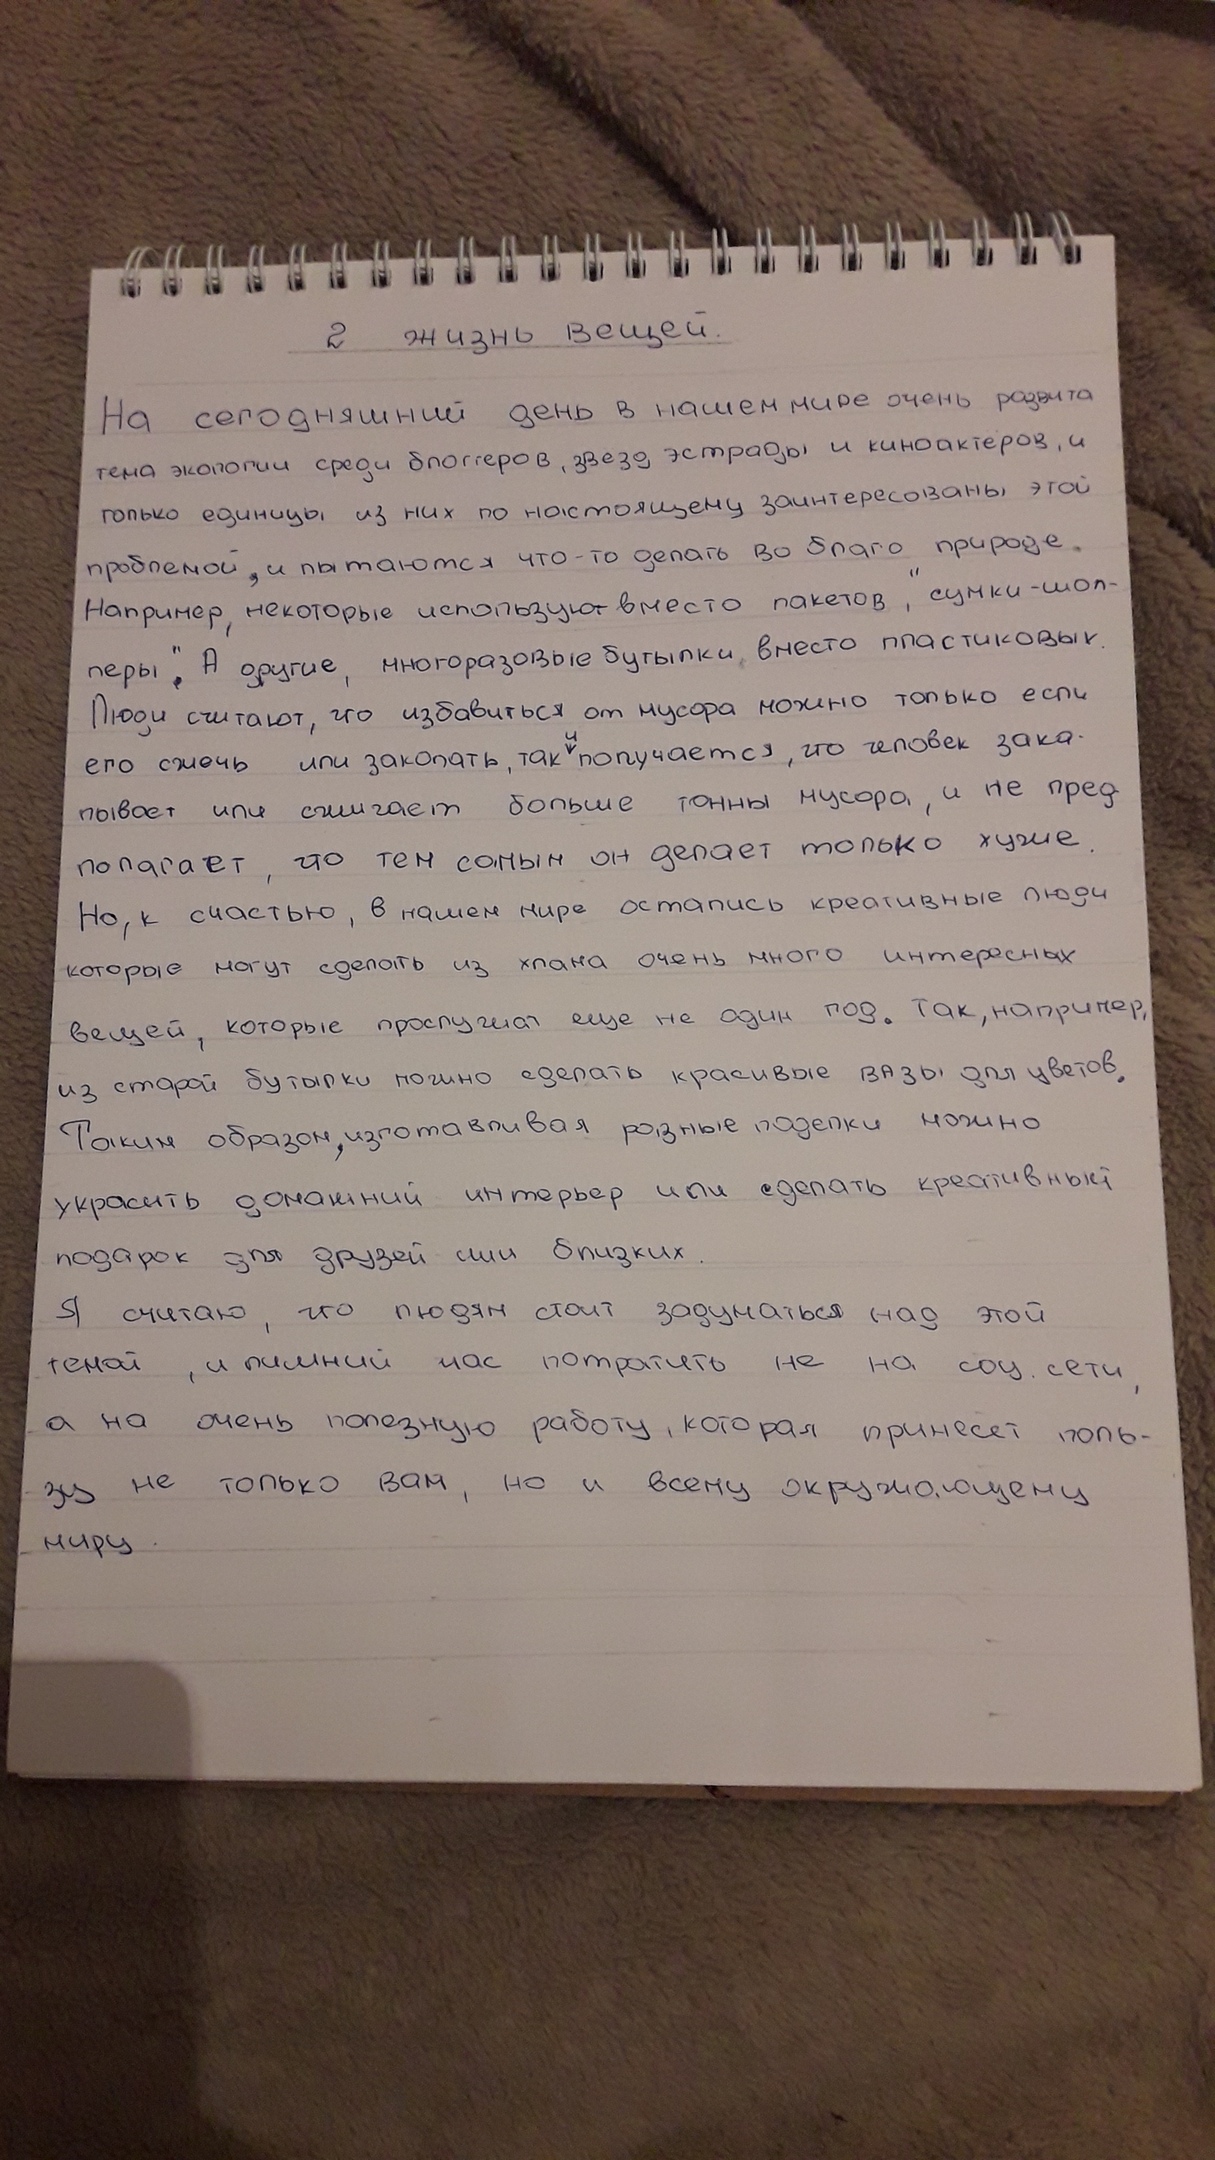 2 жизнь вещей.
На сегодняшний день в нашем мире очень развита
тема экологии среди блоггеров, звезд эстрады и киноактеров, и
только единицы из них по настоящему заинтересованы этой
проблемой, и пытаются что-то делать во благо природе.
Например, некоторые используют вместо пакетов, "сумки-шоп-
перы". А другие, многоразовые бутылки, вместо пластиковых.
Люди считают, что избавиться от мусора можно только если
его сжечь или закопать, так и получается, что человек зака-
пывает или сжигает больше тонны мусора, и не пред
полагает, что тем самым он делает только хуже.
Но, к счастью, в нашем мире остались креативные люди
которые могут сделать из хлама очень много интересных
вещей, которые прослужат еще не один год. Так, например,
из старой бутылки можно сделать красивые вазы для цветов.
Таким образом, изготавливая разные поделки можно
украсить домашний интерьер или сделать креативный
подарок для друзей или близких.
Я считаю, что людям стоит задуматься над этой
темой, и лишний час потратить не на соц. сети,
а на очень полезную работу, которая принесет поль-
зу не только вам, но и всему окружающему
миру.